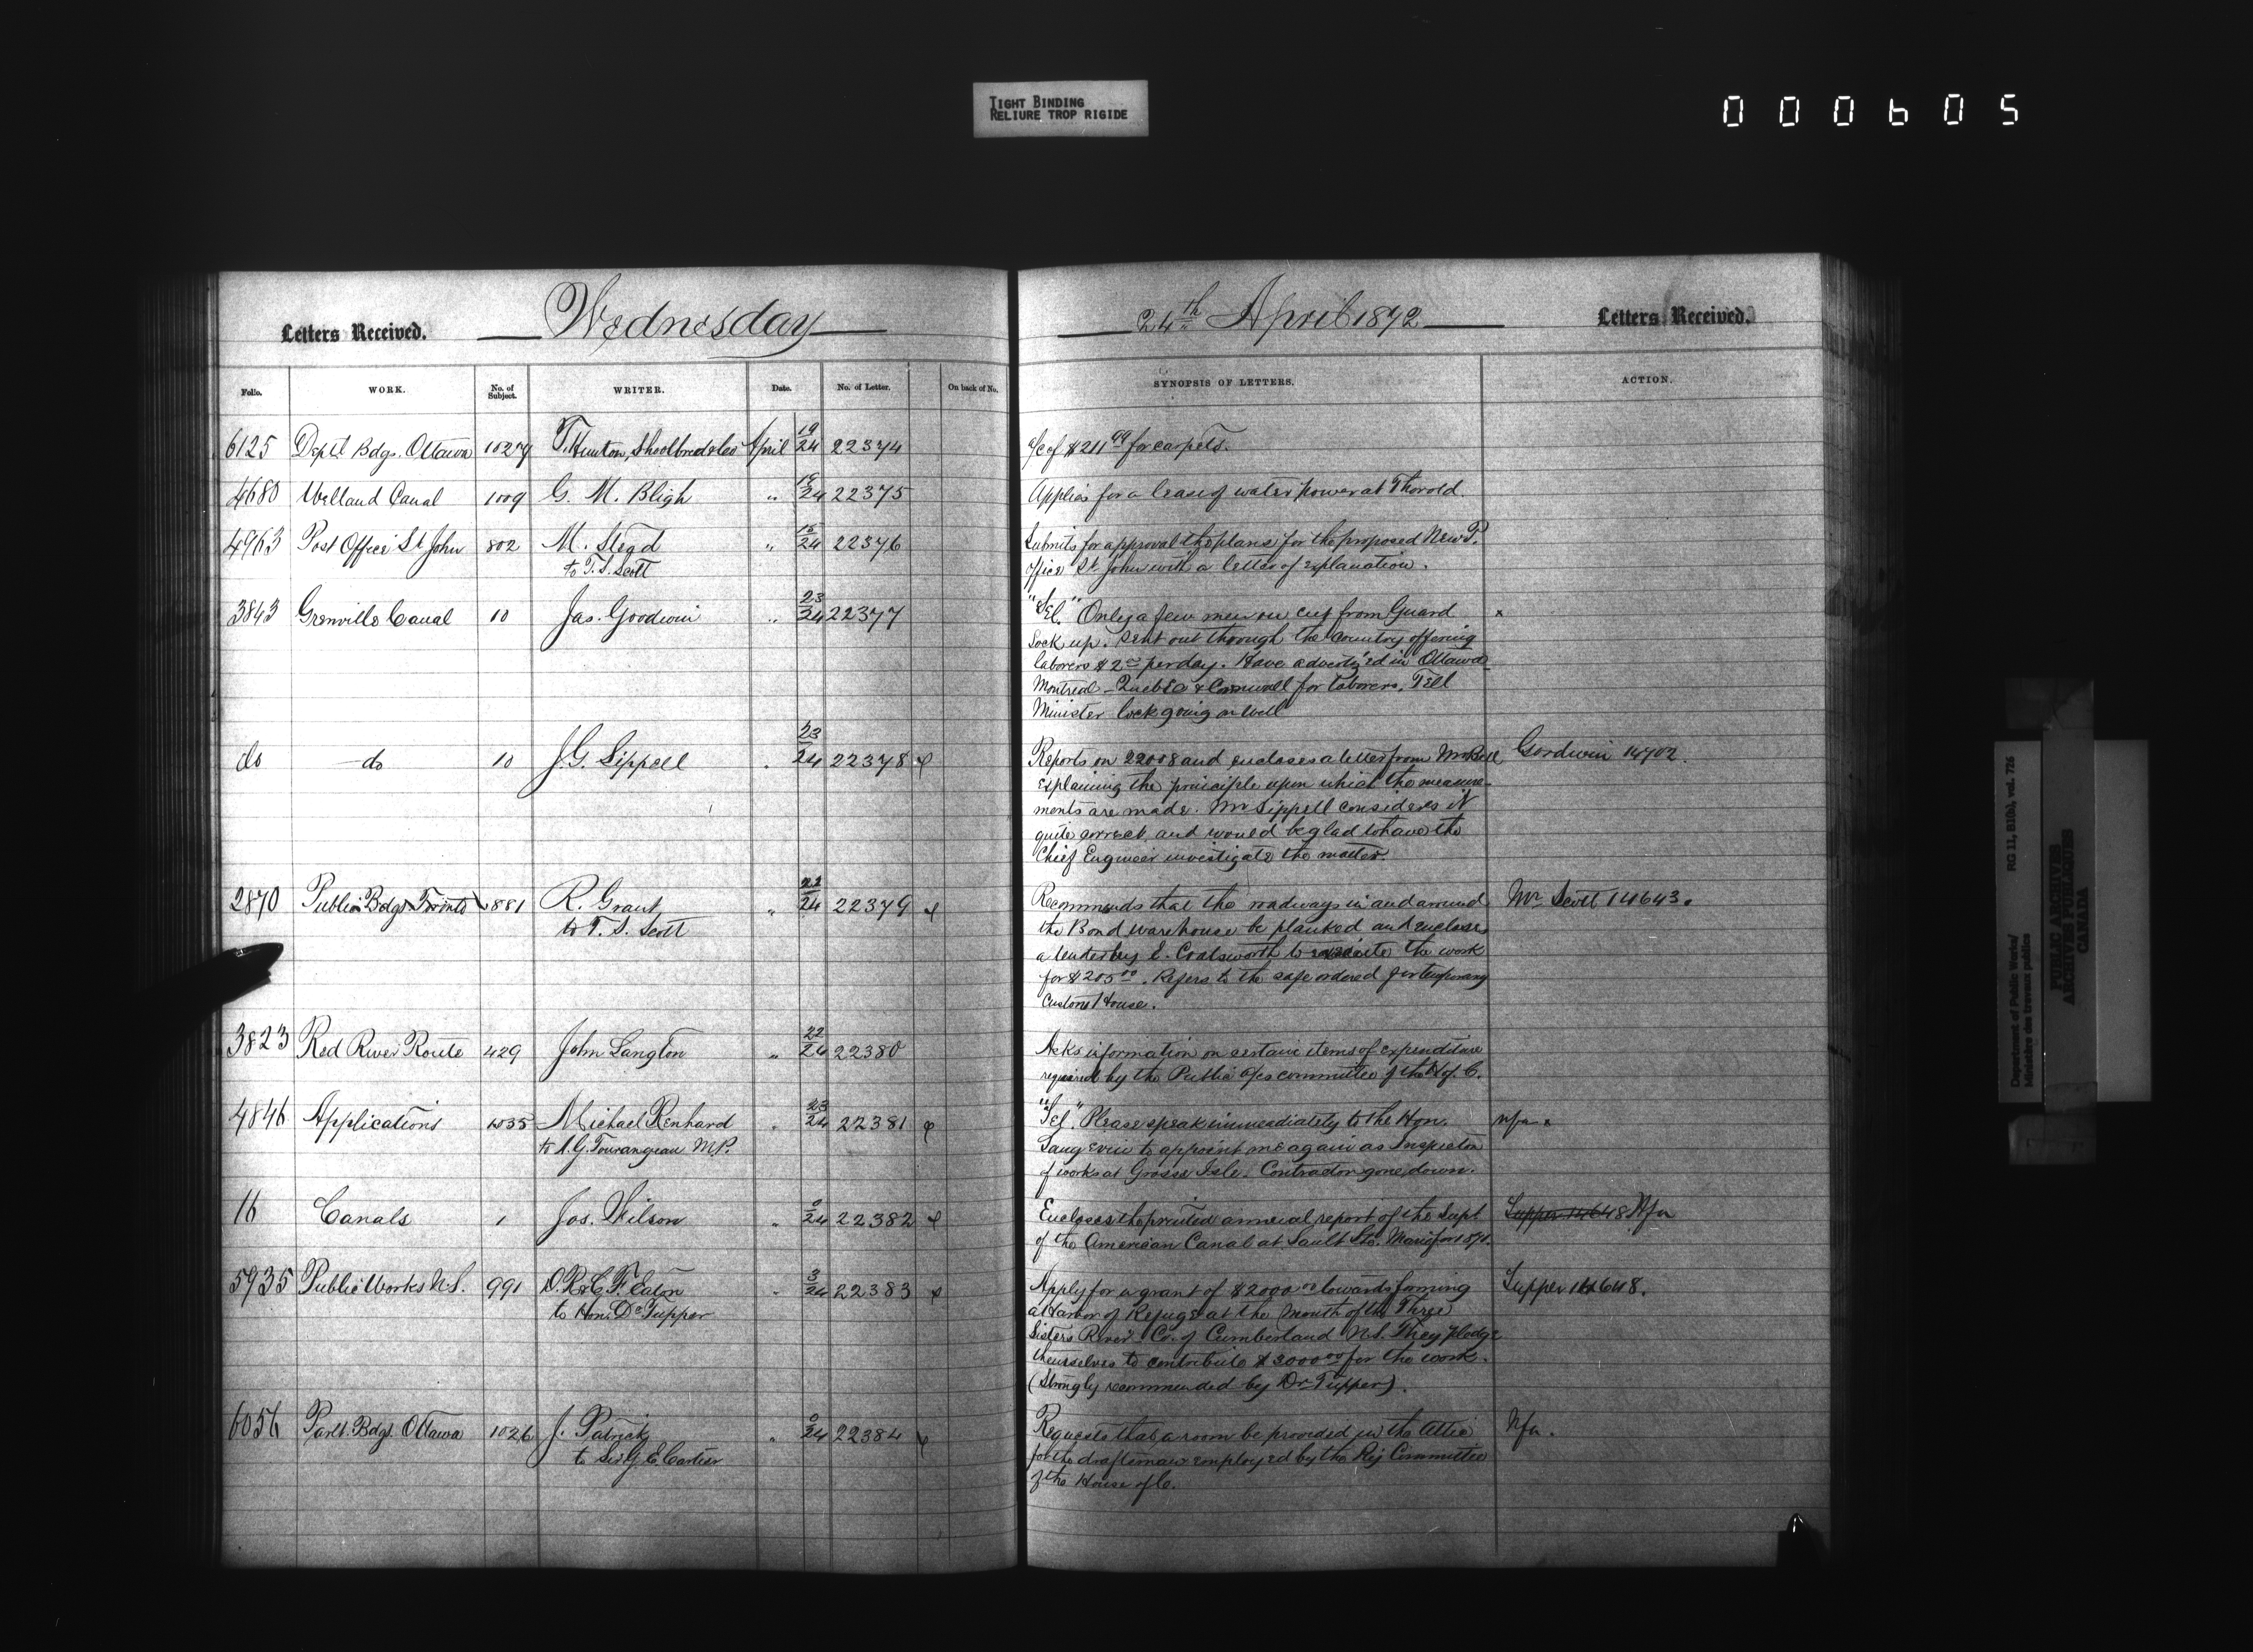 TIGHT BINDING
RELIURE TROP RIGIDE
000605
Letters Received. Wednesday
Folio. WORK. No. of Subject. WRITER. Date. No. of Letter. On back of No.
6125 Deptl Bdgs. Ottawa 1027 T. Hunton, Shoolbred & Co April 19/24 22374
4680 Welland Canal 1009 G. M. Bligh " 24 22375
4963 Post Office St John 802 M. Stead " 15/24 22376
to T. S. Scott
3843 Grenville Canal 10 Jas. Goodwin " 23/24 22377
do do 10 J. G. Sippell " 23/24 22378
2870 Public Bdgs Toronto 881 R. Grant " 22/24 22379
to T. S. Scott
3823 Red River Route 429 John Langton " 22/24 22380
4846 Applications 1035 Michael Renhard " 23/24 22381
to A. G. Tourangeau M.P.
16 Canals 1 Jos. Wilson " 0/24 22382
5935 Public Works N.S. 991 D. R. & C. F. Eaton " 3/24 22383
to Hon. Dr Tupper
6056 Parlt. Bdgs. Ottawa 1026 J. Patrick " 0/24 22384
to Sir G. E. Cartier
24th April 1872 Letters Received.
SYNOPSIS OF LETTERS. ACTION.
a/c of $211 99 for carpets.
Applies for a lease of water power at Thorold.
Submits for approval the plans for the proposed New P.
Office St. John with a letter of explanation.
"Tel." Only a few men on cut from Guard x
Lock up. Sent out through the country offering
laborers $2 00 per day. Have advertized in Ottawa
Montreal - Quebec & Cornwall for laborers, Tell
Minister lock going on well
Reports on 22008 and encloses a letter from Mr Goodwin 14702.
explaining the principle upon which the measure-
ments are made. Mr Sippell considers it
quite correct and would be glad to have the
Chief Engineer investigate the matter.
Recommends that the roadways in and around Mr Scott 14643.
the Bond warehouse be planked and encloses
a tender by E. Coatsworth to execute the work
for $205 00. Refers to the safe ordered for temporary
Custom House.
Asks information on certain items of expenditure
required by the Public a/cs committee of the H. of C.
"Tel." Please speak immediately to the Hon. nfa.
Langevin to appoint me again as Inspector
of works at Grosse Isle. Contractor gone down.
Encloses the printed annual report of the Supt Tupper 14648 Nfa
of the American Canal at Sault Ste. Marie for 1871.
Apply for a grant of $2000 00 towards forming Tupper 14648.
a Harbor of Refuge at the Mouth of the Three
Sisters River Co. of Cumberland N.S. They pledge
themselves to contribute $3000 00 for the work.
(Strongly recommended by Dr Tupper).
Requests that a room be provided in the Attic Nfa.
for the draftsman employed by the Committee
of the House of C.
Department of Public Works/
Ministère des travaux publics
RG 11, B1(b), vol. 726
PUBLIC ARCHIVES
ARCHIVES PUBLIQUES
CANADA